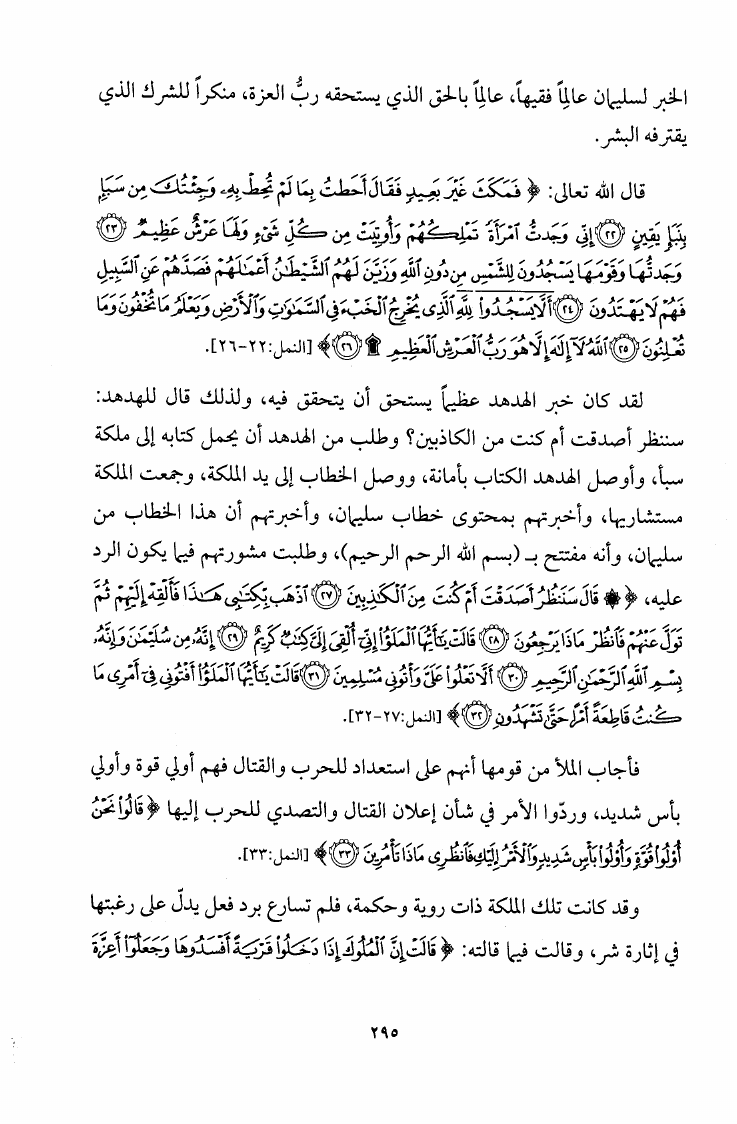 الخبر لسليمان عالماً فقيهاً، عالماً بالحق الذي يستحقه ربُّ العزة، منكراً للشرك الذي
يقترفه البشر.
قال الله تعالى: ﴿ فَمَكَثَ غَيْرَ بَعِيدٍ فَقَالَ أَحَطتُ بِمَا لَمْ تُحِطْ بِهِۦ وَجِئْتُكَ مِن سَبَإٍ
بِنَبَإٍ يَقِينٍ ﴿٢٢﴾ إِنِّى وَجَدتُّ ٱمْرَأَةً تَمْلِكُهُمْ وَأُوتِيَتْ مِن كُلِّ شَىْءٍ وَلَهَا عَرْشٌ عَظِيمٌ ﴿٢٣﴾
وَجَدتُّهَا وَقَوْمَهَا يَسْجُدُونَ لِلشَّمْسِ مِن دُونِ ٱللَّهِ وَزَيَّنَ لَهُمُ ٱلشَّيْطَٰنُ أَعْمَٰلَهُمْ فَصَدَّهُمْ عَنِ ٱلسَّبِيلِ
فَهُمْ لَا يَهْتَدُونَ ﴿٢٤﴾ أَلَّا يَسْجُدُوا۟ لِلَّهِ ٱلَّذِى يُخْرِجُ ٱلْخَبْءَ فِى ٱلسَّمَٰوَٰتِ وَٱلْأَرْضِ وَيَعْلَمُ مَا تُخْفُونَ وَمَا
تُعْلِنُونَ ﴿٢٥﴾ ٱللَّهُ لَآ إِلَٰهَ إِلَّا هُوَ رَبُّ ٱلْعَرْشِ ٱلْعَظِيمِ ۩ ﴿٢٦﴾ ﴾ [النمل:٢٢-٢٦].
لقد كان خبر الهدهد عظيماً يستحق أن يتحقق فيه، ولذلك قال للهدهد:
سننظر أصدقت أم كنت من الكاذبين؟ وطلب من الهدهد أن يحمل كتابه إلى ملكة
سبأ، وأوصل الهدهد الكتاب بأمانة، ووصل الخطاب إلى يد الملكة، وجمعت الملكة
مستشاريها، وأخبرتهم بمحتوى خطاب سليمان، وأخبرتهم أن هذا الخطاب من
سليمان، وأنه مفتتح بـ (بسم الله الرحم الرحيم)، وطلبت مشورتهم فيما يكون الرد
عليه، ﴿ ۞ قَالَ سَنَنظُرُ أَصَدَقْتَ أَمْ كُنتَ مِنَ ٱلْكَٰذِبِينَ ﴿٢٧﴾ ٱذْهَب بِّكِتَٰبِى هَٰذَا فَأَلْقِهْ إِلَيْهِمْ ثُمَّ
تَوَلَّ عَنْهُمْ فَٱنظُرْ مَاذَا يَرْجِعُونَ ﴿٢٨﴾ قَالَتْ يَٰٓأَيُّهَا ٱلْمَلَؤُا۟ إِنِّىٓ أُلْقِىَ إِلَىَّ كِتَٰبٌ كَرِيمٌ ﴿٢٩﴾ إِنَّهُۥ مِن سُلَيْمَٰنَ وَإِنَّهُۥ
بِسْمِ ٱللَّهِ ٱلرَّحْمَٰنِ ٱلرَّحِيمِ ﴿٣٠﴾ أَلَّا تَعْلُوا۟ عَلَىَّ وَأْتُونِى مُسْلِمِينَ ﴿٣١﴾ قَالَتْ يَٰٓأَيُّهَا ٱلْمَلَؤُا۟ أَفْتُونِى فِىٓ أَمْرِى مَا
كُنتُ قَاطِعَةً أَمْرًا حَتَّىٰ تَشْهَدُونِ ﴿٣٢﴾ ﴾ [النمل:٢٧-٣٢].
فأجاب الملأ من قومها أنهم على استعداد للحرب والقتال فهم أولي قوة وأولي
بأس شديد، وردّوا الأمر في شأن إعلان القتال والتصدي للحرب إليها ﴿ قَالُوا۟ نَحْنُ
أُو۟لُوا۟ قُوَّةٍ وَأُو۟لُوا۟ بَأْسٍ شَدِيدٍ وَٱلْأَمْرُ إِلَيْكِ فَٱنظُرِى مَاذَا تَأْمُرِينَ ﴿٣٣﴾ ﴾ [النمل:٣٣].
وقد كانت تلك الملكة ذات روية وحكمة، فلم تسارع برد فعل يدلّ على رغبتها
في إثارة شر، وقالت فيما قالته: ﴿ قَالَتْ إِنَّ ٱلْمُلُوكَ إِذَا دَخَلُوا۟ قَرْيَةً أَفْسَدُوهَا وَجَعَلُوٓا۟ أَعِزَّةَ
٢٩٥